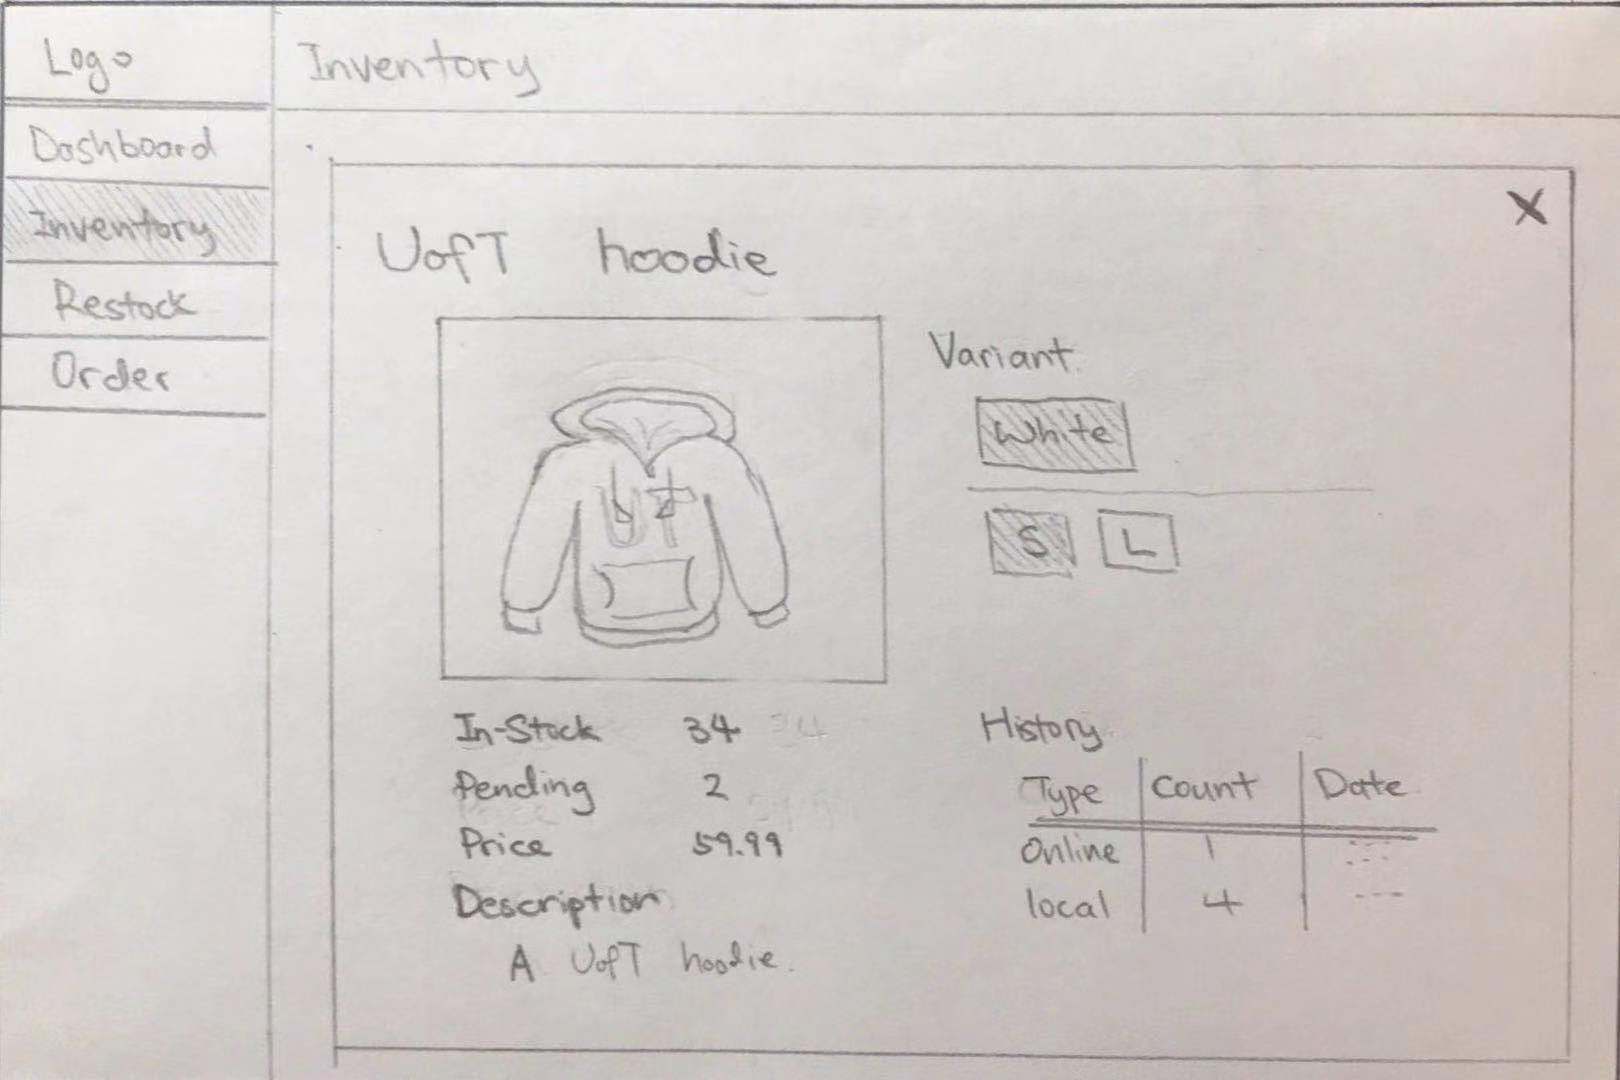 Logo
Inventory
Dashboard
Inventory
Restock
Order
X
UofT hoodie
UT
Variant
White
S L
In-Stock 34 34
Pending 2
Price 59.99
Description
A UofT hoodie.
History
Type Count Date
Online 1
local 4